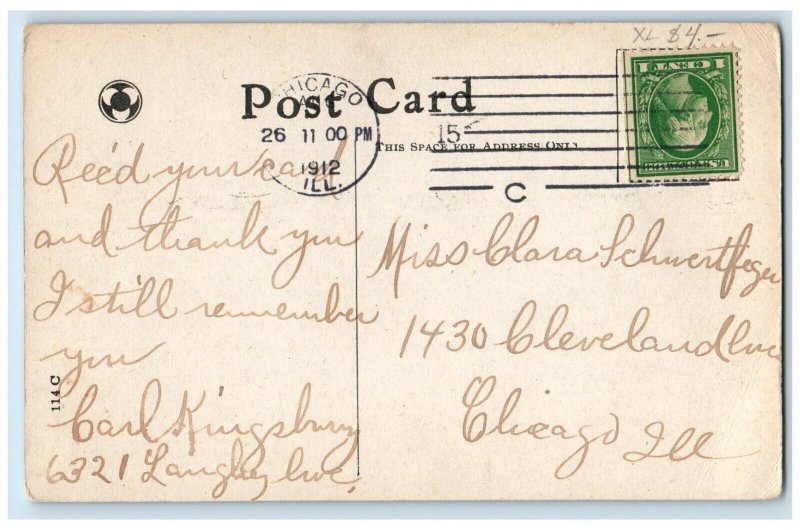 XL $4.-
1 CENT 1
Post Card
CHICAGO
26 11 00 PM
1912
ILL.
15
THIS SPACE FOR ADDRESS ONLY
C
Rec'd your card
and thank you
I still remember
you
Carl Kingsbury
6321 Langley Ave,
Miss Clara Schwertfeger
1430 Cleveland Ave
Chicago Ill
114 C